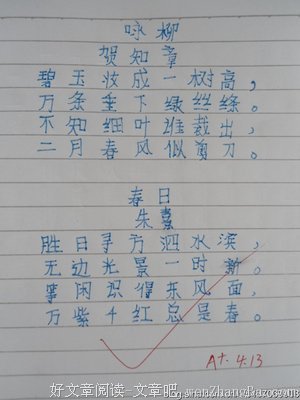 咏柳
贺知章
碧玉妆成一树高，
万条垂下绿丝绦。
不知细叶谁裁出，
二月春风似剪刀。
春日
朱熹
胜日寻方泗水滨，
无边光景一时新。
等闲识得东风面，
万紫千红总是春。
A+. 4.13
好文章阅读-文章吧 wenzhangba.com